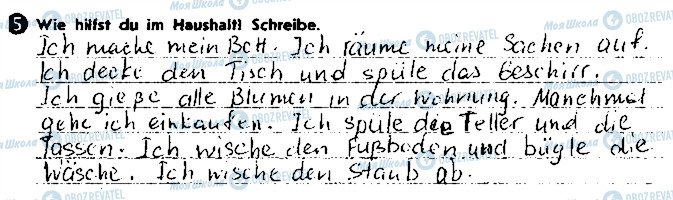 5 Wie hilfst du im Haushalt? Schreibe.
Ich mache mein Bett. Ich räume meine Sachen auf.
Ich decke den Tisch und spüle das Geschirr.
Ich gieße alle Blumen in der Wohnung. Manchmal
gehe ich einkaufen. Ich spüle die Teller und die
Tassen. Ich wische den Fußboden und bügle die
Wäsche. Ich wische den Staub ab.